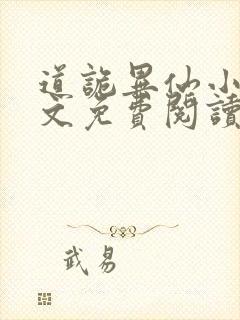 道詭異仙小
文免費閱讀
武易